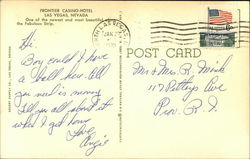 FRONTIER CASINO-HOTEL
LAS VEGAS, NEVADA
One of the newest and most beautiful
the Fabulous Strip.
LAS VEGAS
JAN
POST CARD
Hi
Boy could I have
a ball here - all
you need is money
Tell you all about it
when I get home
Love
Angie
Mr & Mrs R. Mink
117 Pettys Ave
Prov. R. I.